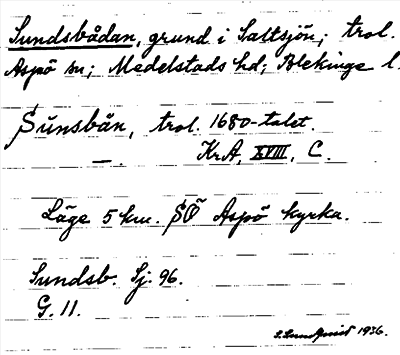 Sundsbådan, grund i Saltsjön; trol.
Aspö sn; Medelstads hd; Blekinge l.
Sünsbån, trol. 1680-talet.
—. KrA, XVIII, C.
Läge 5 km. SÖ Aspö kyrka.
Sundsb. Sj. 96.
G. 11.
S. Lundquist 1936.